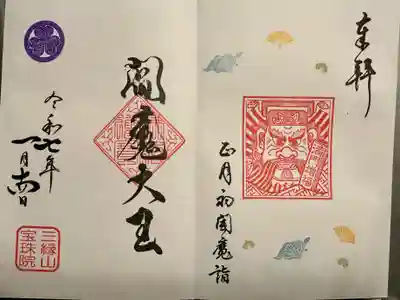 奉拝
正月初閻魔詣
閻魔大王
令和七年
一月
三縁山
宝珠院